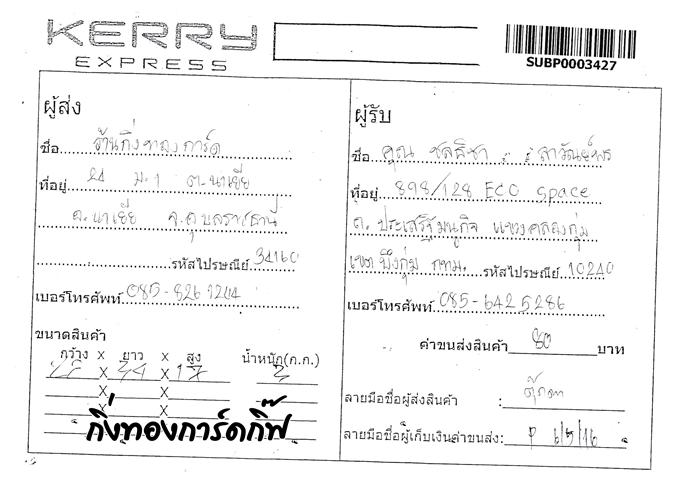 KERRY
EXPRESS
SUBP0003427
ผู้ส่ง
ชื่อ ร้านกิ่งทองการ์ด
ที่อยู่ 21 ม.1 ต.นาเยีย
อ.นาเยีย จ.อุบลราชธานี
รหัสไปรษณีย์ 34160
เบอร์โทรศัพท์ 085-826
ขนาดสินค้า
กว้าง x ยาว x สูง น้ำหนัก(ก.ก.)
X X 17
X X
X X
กิ่งทองการ์ดกิ๊ฟ
ผู้รับ
ชื่อ คุณ
ที่อยู่ 898/128 Eco space
ถ. ประเสริฐมนูกิจ แขวงคลองกุ่ม
เขต บึงกุ่ม กทม. รหัสไปรษณีย์ 10240
เบอร์โทรศัพท์ 085-6425286
ค่าขนส่งสินค้า 80 บาท
ลายมือชื่อผู้ส่งสินค้า : ตุ๊กตา
ลายมือชื่อผู้เก็บเงินค่าขนส่ง: P 6/5/16